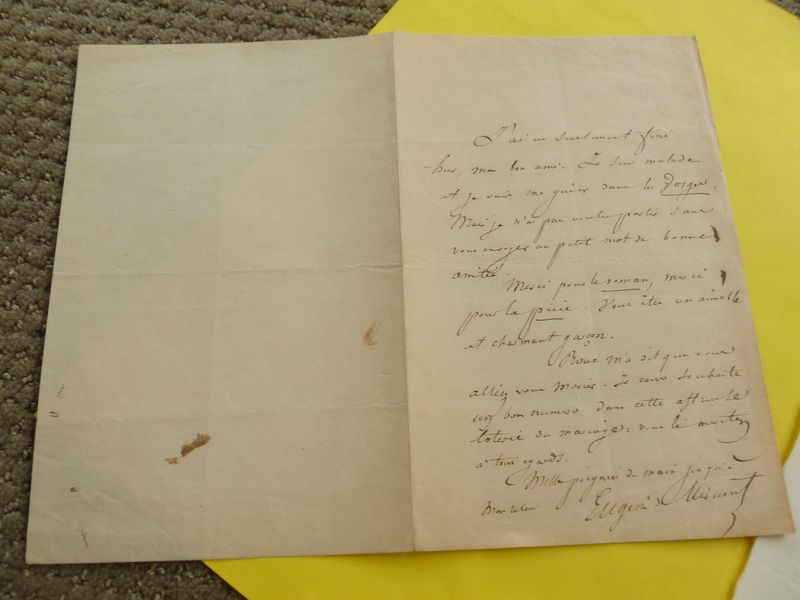 J'ai eu seulement fini
hier, mon bon ami. Je suis malade
et je vais me guérir dans les Vosges.
Mais je n'ai pas voulu partir sans
vous envoyer un petit mot de bonne
amitié.
Merci pour le roman, merci
pour la pièce. Vous êtes un aimable
et charmant garçon.
Roux m'a dit que vous
alliez vous marier. Je vous souhaite
un bon numéro dans cette affreuse
loterie du mariage : vous le méritez
à tous égards.
Mille poignées de main jusqu'à
mon retour
Eugène de Mirecourt